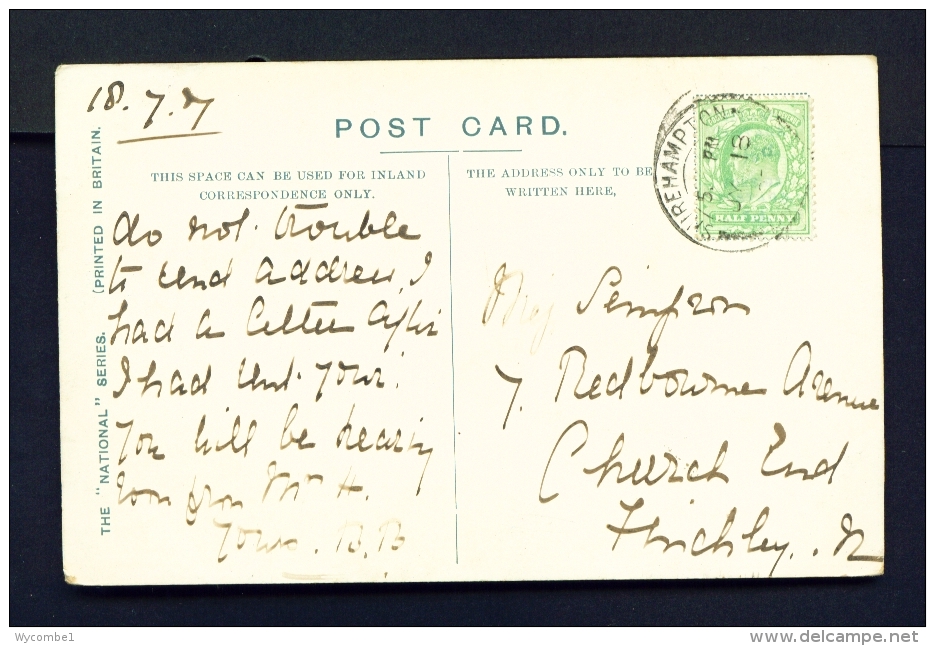 18. 7. 07
POST CARD.
THIS SPACE CAN BE USED FOR INLAND
CORRESPONDENCE ONLY.
THE ADDRESS ONLY TO BE
WRITTEN HERE,
SHIREHAMPTON
5 PM
JY 18
HALF PENNY
THE "NATIONAL" SERIES. (PRINTED IN BRITAIN.
do not trouble
to send address, I
had a letter after
I had sent yours.
You will be hearing
soon from Mrs H.
Yours. B.B
Miss Simpson
7. Redbourne Avenue
Church End
Finchley. N
Wycombe1
www.delcampe.net